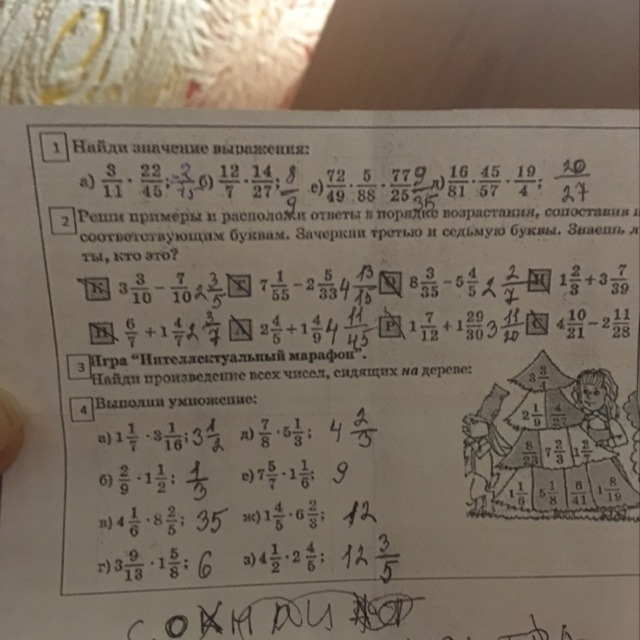 1 Найди значение выражения:
а) 3/11 · 22/45; 2/15 б) 12/7 · 14/27; 8/9 с) 72/49 · 5/88 · 77/25 9/35 16/81 · 45/57 · 19/4; 20/27
2 Реши примеры и расположи ответы в порядке возрастания, сопоставив
соответствующим буквам. Зачеркни третью и седьмую буквы. Знаешь
ты, кто это?
3 3/10 − 7/10 2 3/5 7 1/55 − 2 5/33 4 13/15 8 3/35 − 5 4/5 2 2/7 Н 1 2/3 + 3 7/39
6/7 + 1 4/7 2 3/7 2 4/5 + 1 4/9 4 11/45 Р 1 7/12 + 1 29/30 3 11/20 4 10/21 − 2 11/28
3 Игра “Интеллектуальный марафон”.
Найди произведение всех чисел, сидящих на дереве:
4 Выполни умножение:
а) 1 1/7 · 3 1/16; 3 1/2 д) 7/8 · 5 1/3; 4 2/3
б) 2/9 · 1 1/2; 1/3 е) 7 5/7 · 1 1/6; 9
в) 4 1/6 · 8 2/5; 35 ж) 1 4/5 · 6 2/3; 12
г) 3 9/13 · 1 5/8; 6 з) 4 1/2 · 2 4/5; 12 3/5
2 1/9
7 2/3
1 1/6 5 1/8 6/41 1 8/19